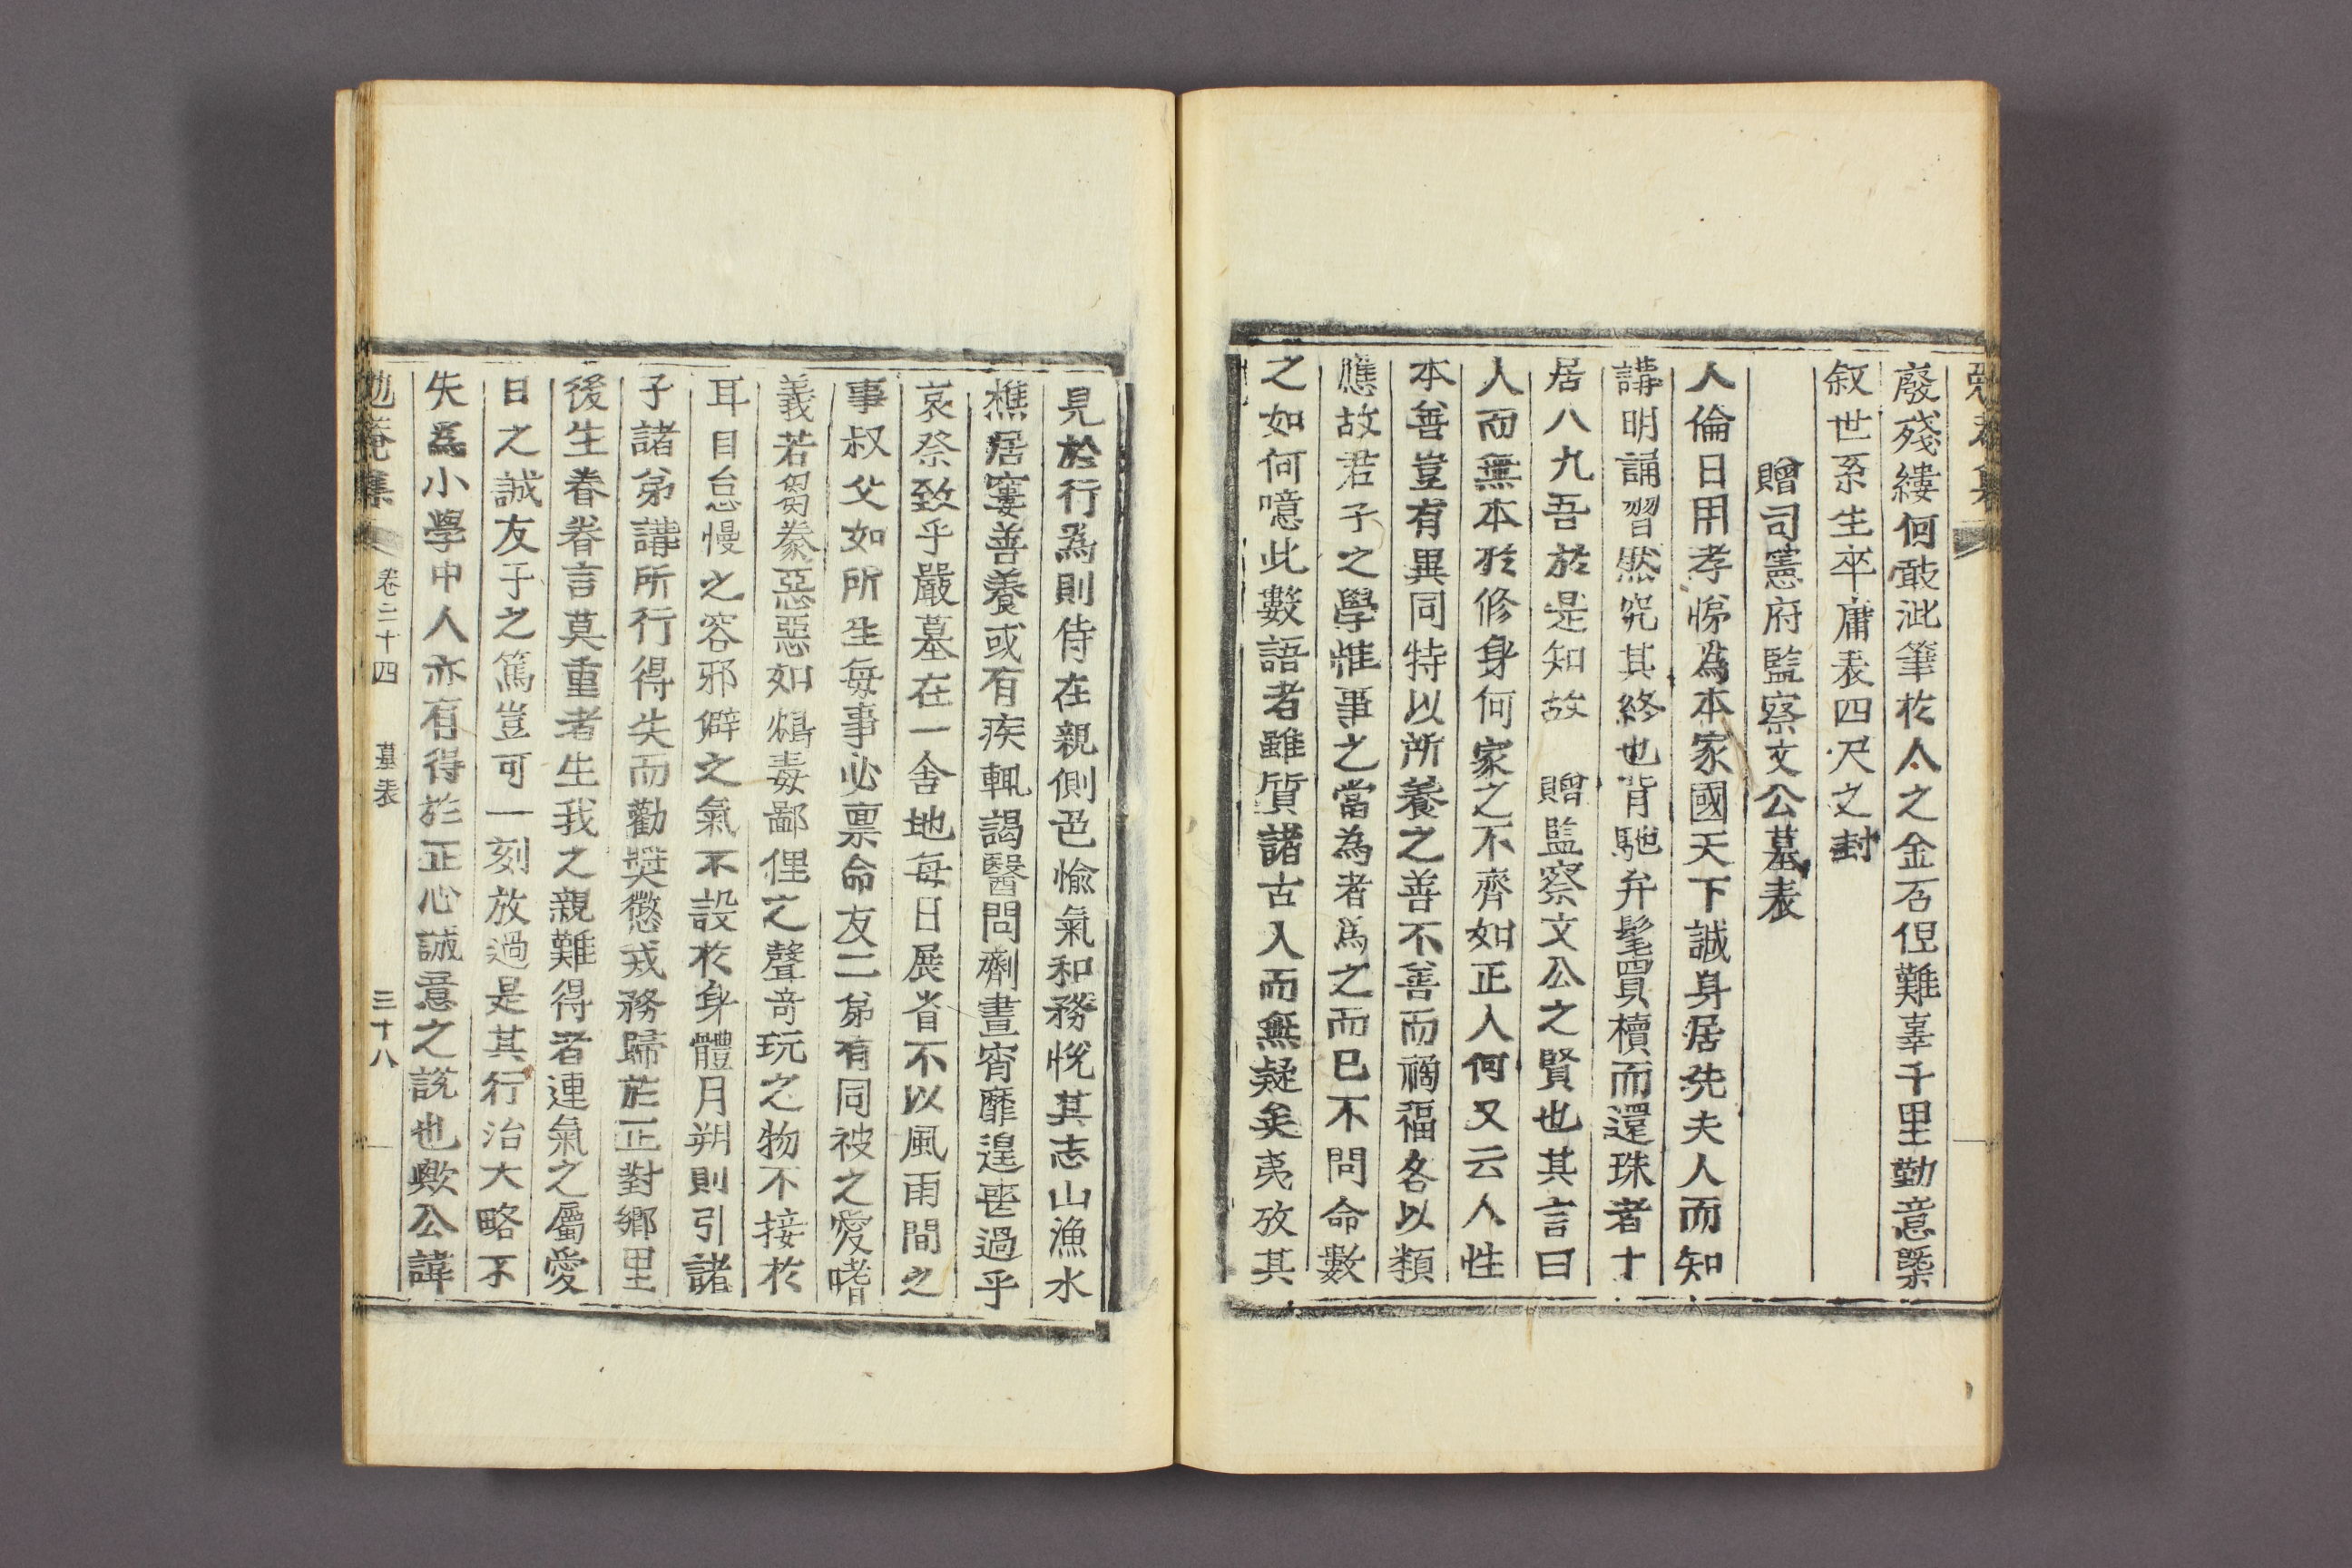 廢殘縷何敢泚筆於人之金石但難辜千里勤意槩
叙世系生卒庸表四尺之封
贈司憲府監察文公墓表
人倫日用孝悌為本家國天下誠身居先夫人而知
講明誦習然究其終也背馳弁髦買櫝而還珠者十
居八九吾於是知故 贈監察文公之賢也其言曰
人而無本於修身何家之不齊如正人何又云人性
本善豈有異同特以所養之善不善而禍福各以類
應故君子之學惟事之當為者爲之而已不問命數
之如何噫此數語者雖質諸古人而無疑矣夷攷其
見於行爲則侍在親側色愉氣和務悅其志山漁水
樵居窶善養或有疾輒謁醫問劑晝宵靡遑喪過乎
哀祭致乎嚴墓在一舍地每日展省不以風雨間之
事叔父如所生每事必禀命友二弟有同被之愛嗜
義若芻豢惡惡如鴆毒鄙俚之聲奇玩之物不接於
耳目怠慢之容邪僻之氣不設於身體月朔則引諸
子諸弟講所行得失而勸奬懲戒務歸於正對鄉里
後生眷眷言莫重者生我之親難得者連氣之屬愛
日之誠友于之篤豈可一刻放過是其行治大略不
失爲小學中人亦有得於正心誠意之說也歟公諱
勉菴集 卷二十四 墓表 三十八